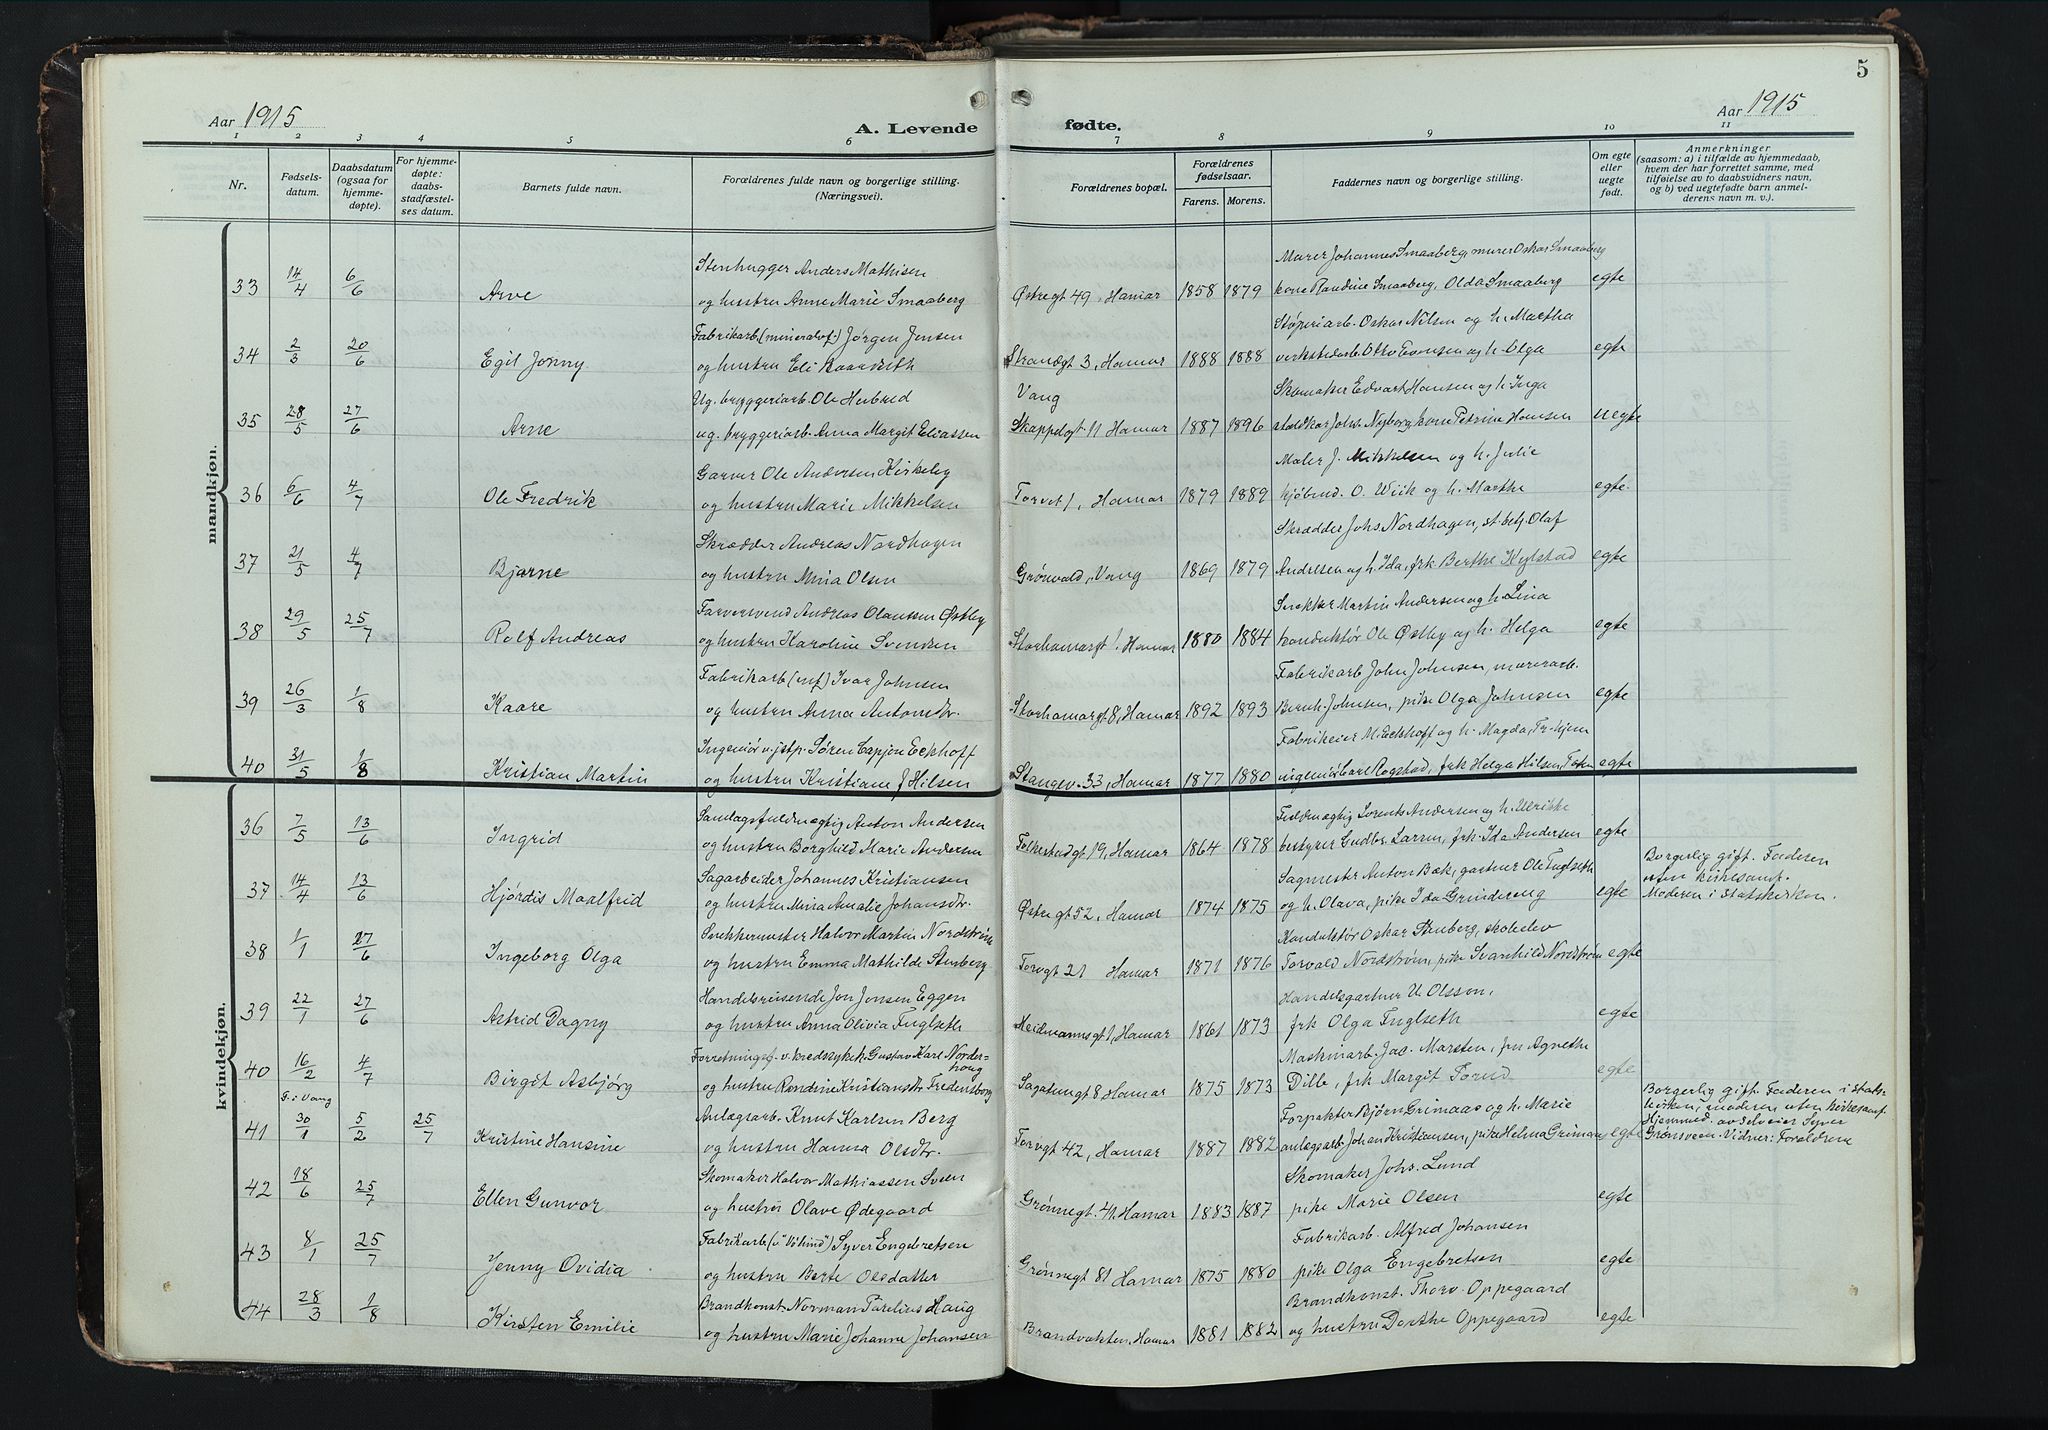 5
Aar 1915
Aar 1915
A. Levende fødte.
1 2 3 4 5 6 7 8 9 10 11
Nr.
Fødsels-
datum.
Daabsdatum
(ogsaa for
hjemme-
døpte).
For hjemme-
døpte:
daabs-
stadfæstel-
ses datum.
Barnets fulde navn.
Forældrenes fulde navn og borgerlige stilling.
(Næringsvei).
Forældrenes bopæl.
Forældrenes
fødselsaar.
Farens. Morens.
Faddernes navn og borgerlige stilling.
Om egte
eller
uegte
født.
Anmerkninger
(saasom: a) i tilfælde av hjemmedaab,
hvem der har forrettet samme, med
tilføielse av to daabsvidners navn,
og b) ved uegtefødte barn anmel-
derens navn m. v.).
mandkjøn.
Stenhugger Anders Mathisen Murer Johannes Smaaberg, murer Oskar Smaaberg
33 14/4 6/6 Arve og hustru Anne Marie Smaaberg Østregt 49, Hamar 1858 1879 kone Randine Smaaberg, Olda Smaaberg egte
Fabrikarb. (mineralvf.) Jørgen Jensen Støperiarb. Oskar Nilsen og h. Martha
34 2/3 20/6 Egil Jonny og hustru Eli Strandgt 3, Hamar 1888 1888 verkstedarb. Otto Evensen og h. Olga egte
Ug. bryggeriarb. Ole Herbred Vang Skomaker Edvart Hansen og h. Inga
35 28/5 27/6 Arne ug. bryggeriarb. Anna Margit Eliassen Skappelsgt 11 Hamar 1887 1896 staldkar Johs. Nyborg, kone Petrine Hansen uegte
Garver Ole Andersen Kirkeby Maler J. Mikkelsen og h. Julie
36 6/6 4/7 Ole Fredrik og hustru Marie Mikkelsen Torvet 1, Hamar 1879 1889 kjøbmd. O. Wiik og h. Marthe egte.
Skrædder Andreas Nordhagen Skrædder Johs. Nordhagen, st. betj. Olaf
37 21/5 4/7 Bjarne og hustru Mina Olsen Grønvold, Vang 1869 1879 Andresen og h. Ida, frk Berthe Kylstad egte
Farversvend Andreas Olaussen Østby Snekker Martin Andersen og h. Lina
38 29/5 25/7 Rolf Andreas og hustru Karoline Svendsen Storhamargt 1 Hamar 1880 1884 konduktør Ole Østby og h. Helga egte
Fabrikarb. Ivar Johnsen Fabrikarb John Johnsen, murerarb.
39 26/3 1/8 Kaare og hustru Anna Antonsdtr. Storhamargt 8, Hamar 1892 1893 Bernh. Johnsen, pike Olga Johnsen egte
Ingeniør v. jstp. Søren Cappon Eckhoff Fabrikeier M. Eckhoff og h. Magda, Tr.hjem
40 31/5 1/8 Kristian Martin og hustru Kristiane J Hilsen Stangev. 33, Hamar 1877 1880 ingeniør Carl Rogstad, frk Helga Hilsen, egte
kvindekjøn.
Samlagsfuldmægtig Anton Andersen Fuldmægtig Lorents Andersen og h. Ulrikke
36 7/5 13/6 Ingrid og hustru Borghild Marie Andersen Folkestadgt 19, Hamar 1864 1878 bestyrer Gudbr. Larsen, frk. Ida Andersen egte
Sagarbeider Johannes Kristiansen Sagmester Anton Bæk, gartner Ole Fuglseth Borgerlig gift. Faderen
uten kirkesamf.
37 14/4 13/6 Hjørdis Maalfrid og hustru Mina Amalie Johansdtr. Østregt 52, Hamar 1874 1875 og h. Olava, pike Ida Grindereng egte Moderen i Statskirken.
Snekkermester Halvor Martin Nordstrøm Konduktør Oskar Stenberg, skoleelev
38 1/1 27/6 Ingeborg Olga og hustru Emma Mathilde Stenberg Torvgt 21 Hamar 1871 1876 Torvald Nordstrøm, pike Svanhild Nordstrøm egte
Handelsreisende Jon Jensen Eggen Handelsgartner U. Olsson,
39 22/1 27/6 Astrid Dagny og hustru Anna Olivia Fuglseth Heidmannsgt 1, Hamar 1861 1873 frk Olga Fuglseth egte
Forretningsf. v. kredssykek. Gustav Karl Norder-
houg Maskinarb. Jac. Marsten, fru Agnethe
40 16/2 4/7 Birgit Asbjørg og hustru Rondine Kristiansdtr Fredensborg Sagatungt 8, Hamar 1875 1873 Dille, frk Margit Torud egte
F. i Vang
Anlægsarb. Knut Karlsen Berg Forpakter Bjørn Grimaas og h. Marie Borgerlig gift. Faderen i stats-
kirken, moderen uten kirkesamf.
41 30/1 5/2 25/7 Kristine Hansine og hustru Hanna Olsdtr. Torvgt 42, Hamar 1887 1882 anlægsarb. Johan Kristiansen, pike Helma Grimaas egte Hjemmed. av selveier Syver
Grønsveen. Vidner: Forældrene
Skomaker Halvor Mathiassen Sveen Skomaker Johs. Lund
42 18/6 25/7 Ellen Gunvor og hustru Olave Ødegaard Grønnegt. 41, Hamar 1883 1887 pike Marie Olsen egte
Fabrikarb. Syver Engebretsen Fabrikarb. Alfred Johansen
43 8/1 25/7 Jenny Ovidia og hustru Berte Olsdatter Grønnegt 81 Hamar 1875 1880 pike Olga Engebretsen egte
Brandkonst. Norman Parelius Haug Brandkonst. Thorv. Oppegaard
44 28/3 1/8 Kirsten Emilie og hustru Marie Johanne Johansen Brandvakten, Hamar 1881 1882 og hustru Dorthe Oppegaard egte